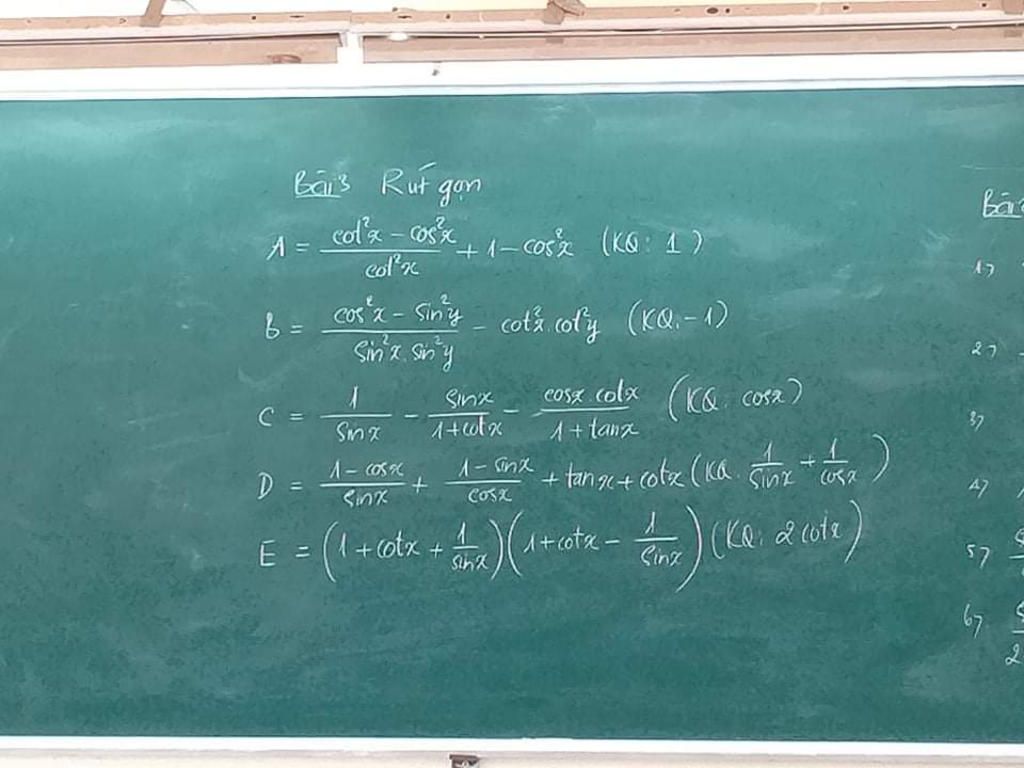 Bài 3 Rút gọn
A = (cot²x - cos²x)/(cot²x) + 1 - cos²x (KQ: 1)
B = (cos²x - sin²y)/(sin²x.sin²y) - cot²x.cot²y (KQ: -1)
C = 1/(sinx) - (sinx)/(1+cotx) - (cosx cotx)/(1+tanx) (KQ: cosx)
D = (1-cosx)/(sinx) + (1-sinx)/(cosx) + tanx + cotx (KQ: 1/(sinx) + 1/(cosx))
E = (1+cotx + 1/(sinx))(1+cotx - 1/(sinx)) (KQ: 2cotx)
Bài
1>
2>
3>
4>
5>
6>
2